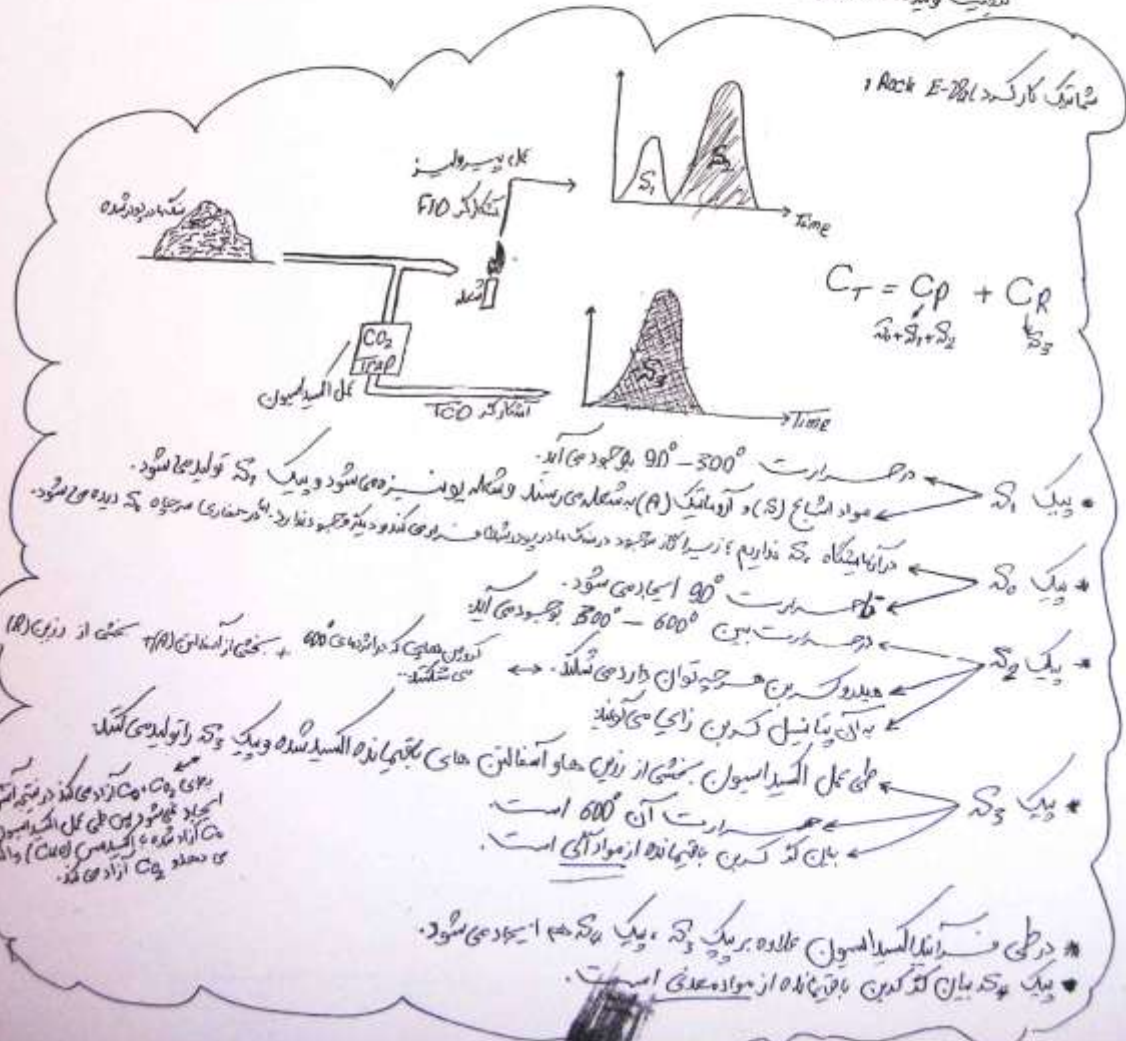 شماتیک کار کرد Rock E-Val
سنگ مادر پودر شده
عمل پیرولیز
آشکارگر FID
شعله
S1
S2
Time
CO2
Trap
عمل اکسیداسیون
آشکارگر TCD
S3
Time
CT = CP + CR
S0+S1+S2
S3
• پیک S1
در حرارت 300° – 90° بوجود می آید.
مواد اشباع (S) و آروماتیک (A) به شعله می رسند و شعله یونیزه می شود و پیک S1 تولید می شود.
* پیک S0
در آزمایشگاه S0 نداریم؛ زیرا گاز موجود در سنگ مادر پودر شده فرار می کند و دیگر وجود ندارد. اما در حفاری سرچاه S0 دیده می شود.
تا حرارت 90° ایجاد می شود.
* پیک S2
در حرارت بین 600° – 300° بوجود می آید.
هیدروکربن هر چه توان دارد می شکند.
کروژن هایی که در 600° می شکنند + بخشی از آسفالتن (A) + بخشی از رزین (R)
به آن پتانسیل کربن زایی می گویند.
* پیک S3
طی عمل اکسیداسیون بخشی از رزین ها و آسفالتن های باقیمانده اکسید شده و پیک S3 را تولید می کنند.
حرارت آن 600° است.
بیان گر کربن باقیمانده از مواد آلی است.
CO آزاد شده با اکسید مس (CuO)
می دهد و CO2 آزاد می کند.
* در طی فرآیند اکسیداسیون علاوه بر پیک S3، پیک S4 هم ایجاد می شود.
• پیک S4 بیان گر کربن باقیمانده از مواد معدنی است.